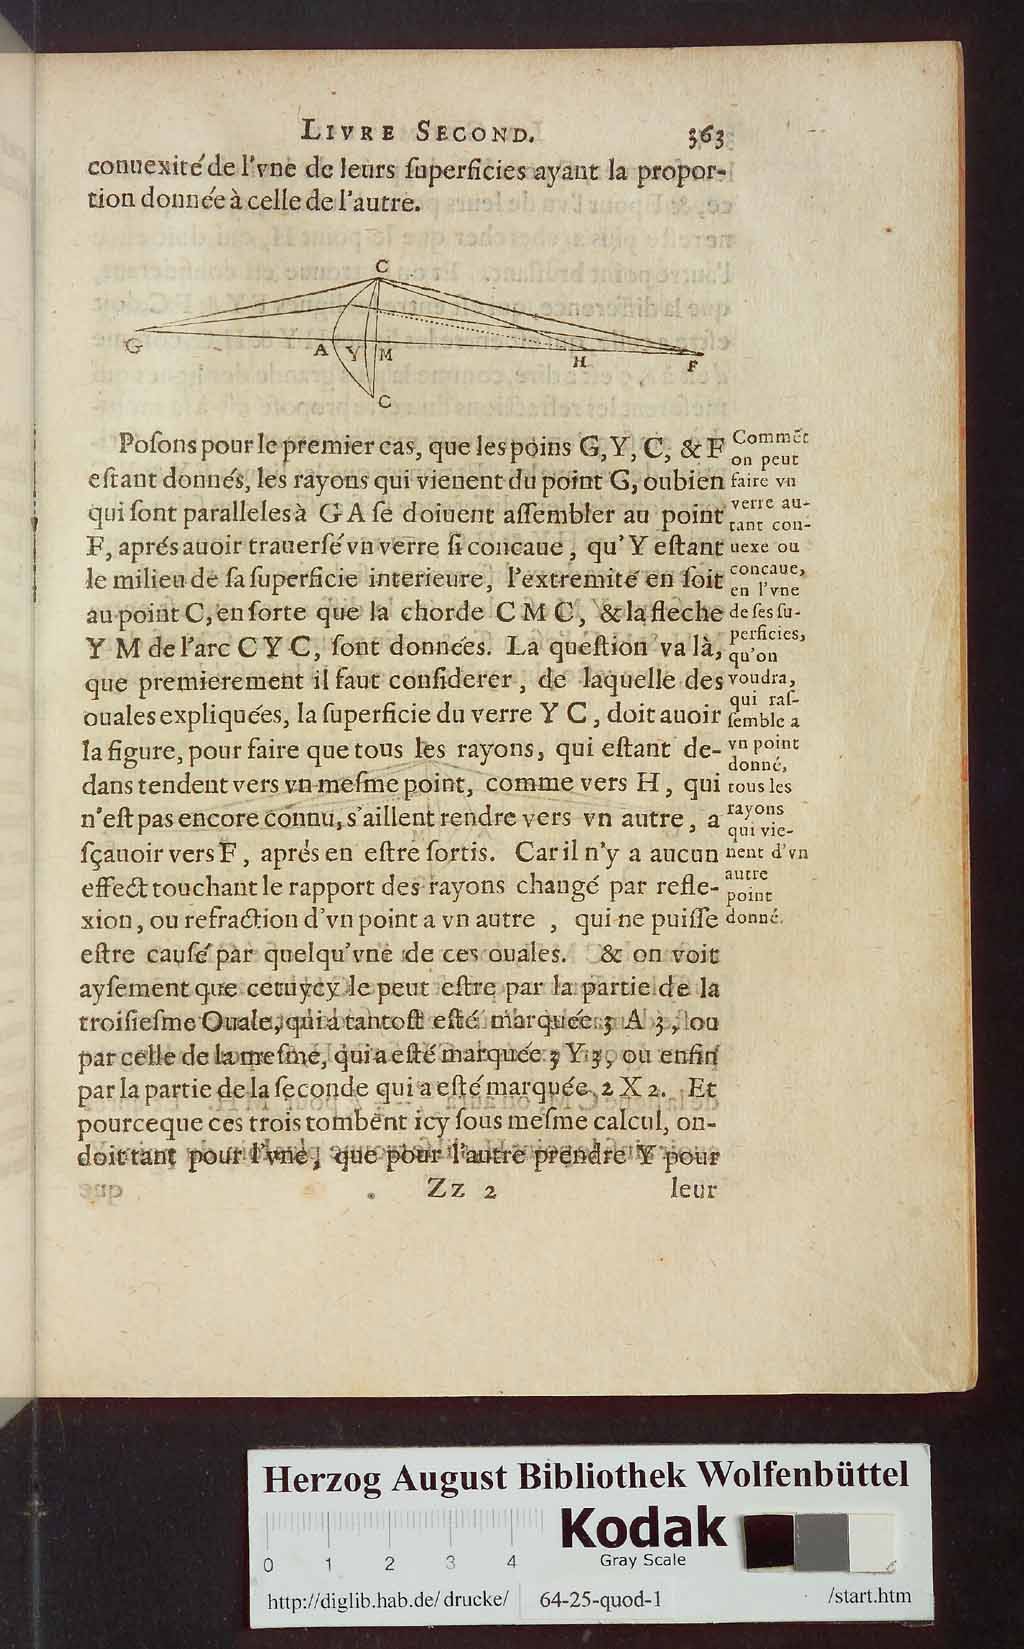 LIVRE SECOND. 363
conuexité de l'vne de leurs ſuperficies ayant la propor-
tion donnée à celle de l'autre.
C
G A Y M H F
C
Poſons pour le premier cas, que les poins G, Y, C, & F
eſtant donnés, les rayons qui vienent du point G, oubien
qui ſont paralleles à G A ſe doiuent aſſembler au point
F, aprés auoir trauerſé vn verre ſi concaue, qu'Y eſtant
le milieu de ſa ſuperficie interieure, l'extremité en ſoit
au point C, en ſorte que la chorde C M C, & la fleche
Y M de l'arc C Y C, ſont données. La queſtion va là,
que premierement il faut conſiderer, de laquelle des
ouales expliquées, la ſuperficie du verre Y C, doit auoir
la figure, pour faire que tous les rayons, qui eſtant de-
dans tendent vers vn meſme point, comme vers H, qui
n'eſt pas encore connu, s'aillent rendre vers vn autre, a
ſçauoir vers F, aprés en eſtre ſortis. Car il n'y a aucun
effect touchant le rapport des rayons changé par refle-
xion, ou refraction d'vn point a vn autre , qui ne puiſſe
eſtre cauſé par quelqu'vne de ces ouales. & on voit
ayſement que cetuycy le peut eſtre par la partie de la
troiſieſme Ouale, qui a tantoſt eſté marquée 3 A 3, ou
par celle de la meſme, qui a eſté marquée 3 Y 3, ou enfin
par la partie de la ſeconde qui a eſté marquée 2 X 2. Et
pourceque ces trois tombent icy ſous meſme calcul, on-
doit tant pour l'vne, que pour l'autre prendre Y pour
Zz 2 leur
Commēt
on peut
faire vn
verre au-
tant con-
uexe ou
concaue,
en l'vne
de ſes ſu-
perficies,
qu'on
voudra,
qui raſ-
ſemble a
vn point
donné,
tous les
rayons
qui vie-
nent d'vn
autre
point
donné.
Herzog August Bibliothek Wolfenbüttel
0 1 2 3 4
Kodak
Gray Scale
http://diglib.hab.de/drucke/ 64-25-quod-1 /start.htm